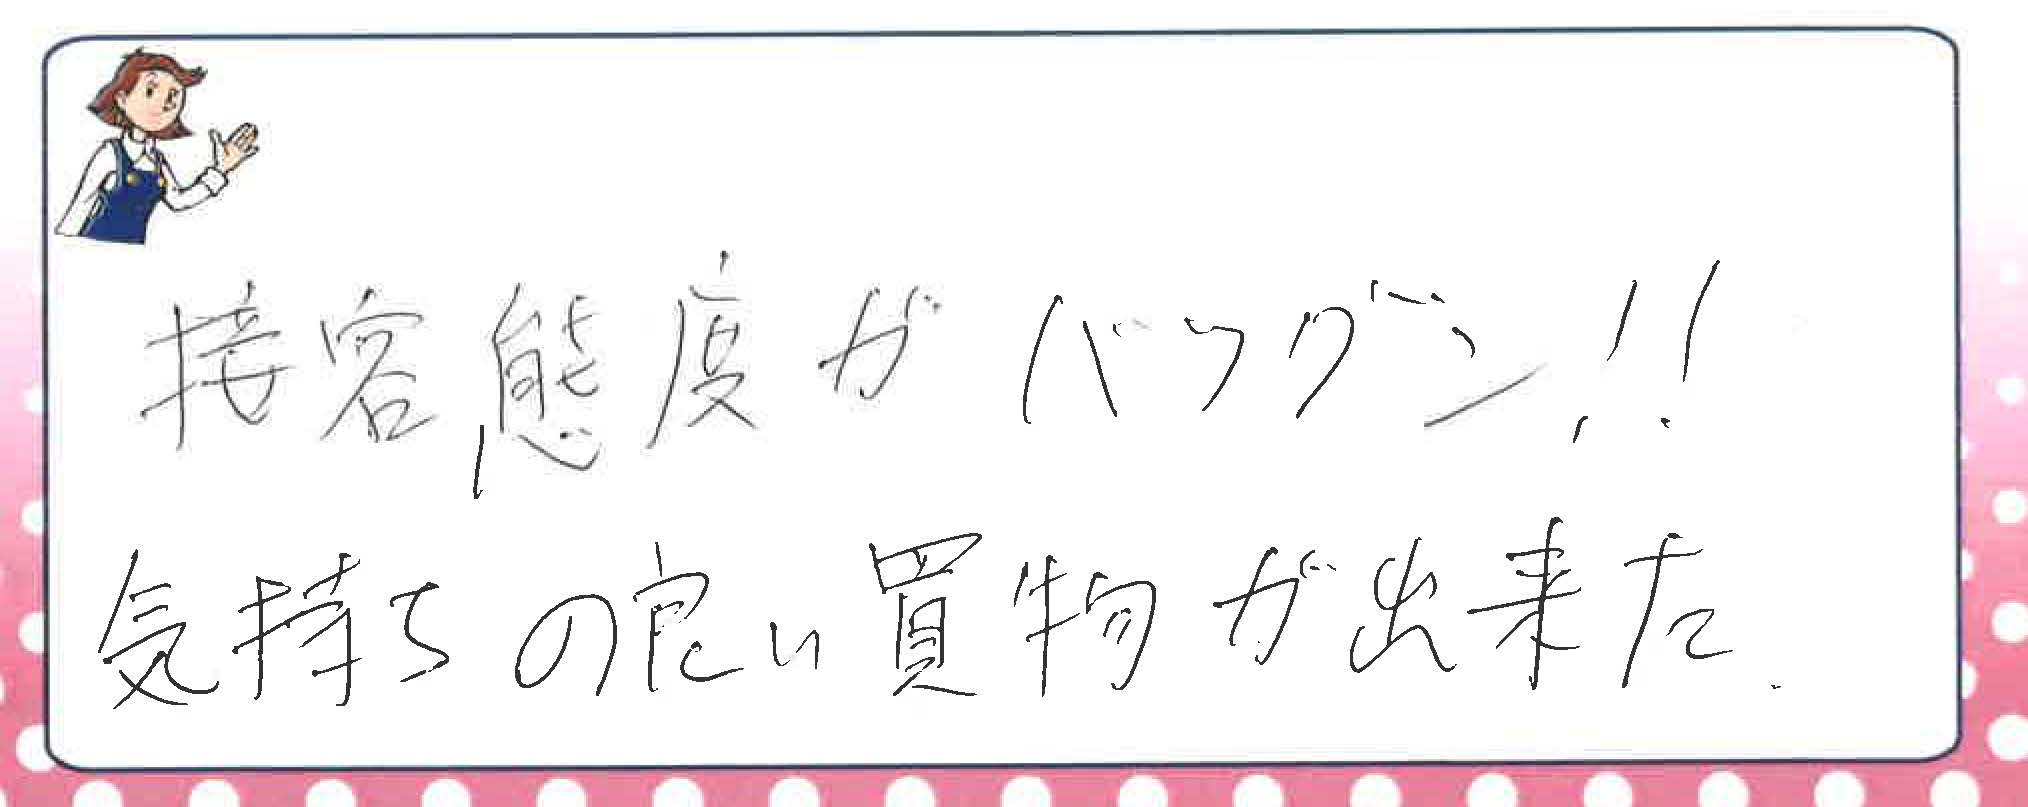 接客態度がバツグン!!
気持ちの良い買物が出来た.